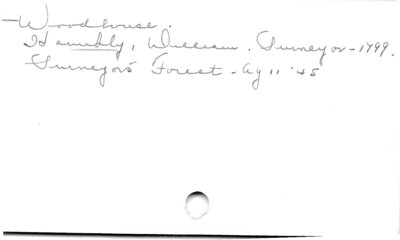 Woodhouse.
Hambly, William. Surveyor - 1799.
Surveyors Forest - Ag 11 '45